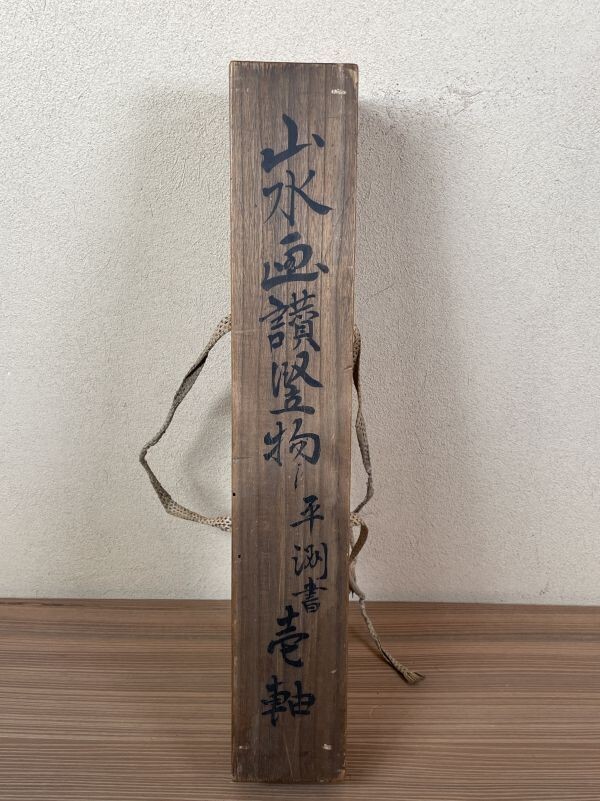 山水画讃竪物
平渕書
壱軸